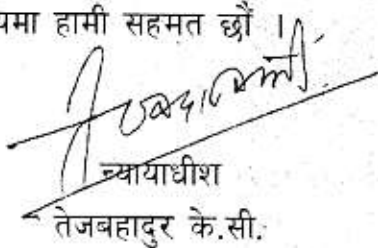 यमा हामी सहमत छौं ।
न्यायाधीश
तेजबहादुर के.सी.